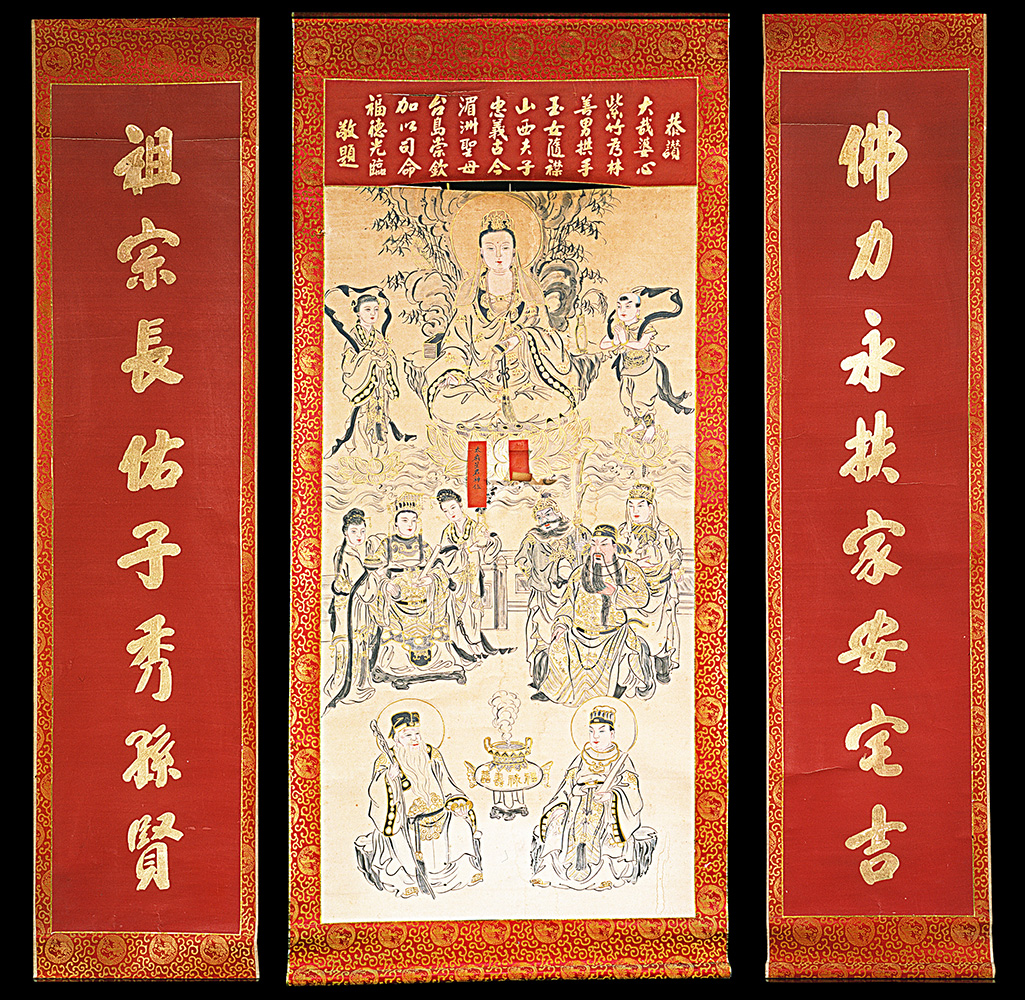 佛力永扶家安宅吉
恭讚
大哉婆心
紫竹為林
善男拱手
玉女隨襟
山西夫子
忠義古今
湄洲聖母
台島崇欽
加以司命
福德光臨
敬題
祖宗長佑子秀孫賢